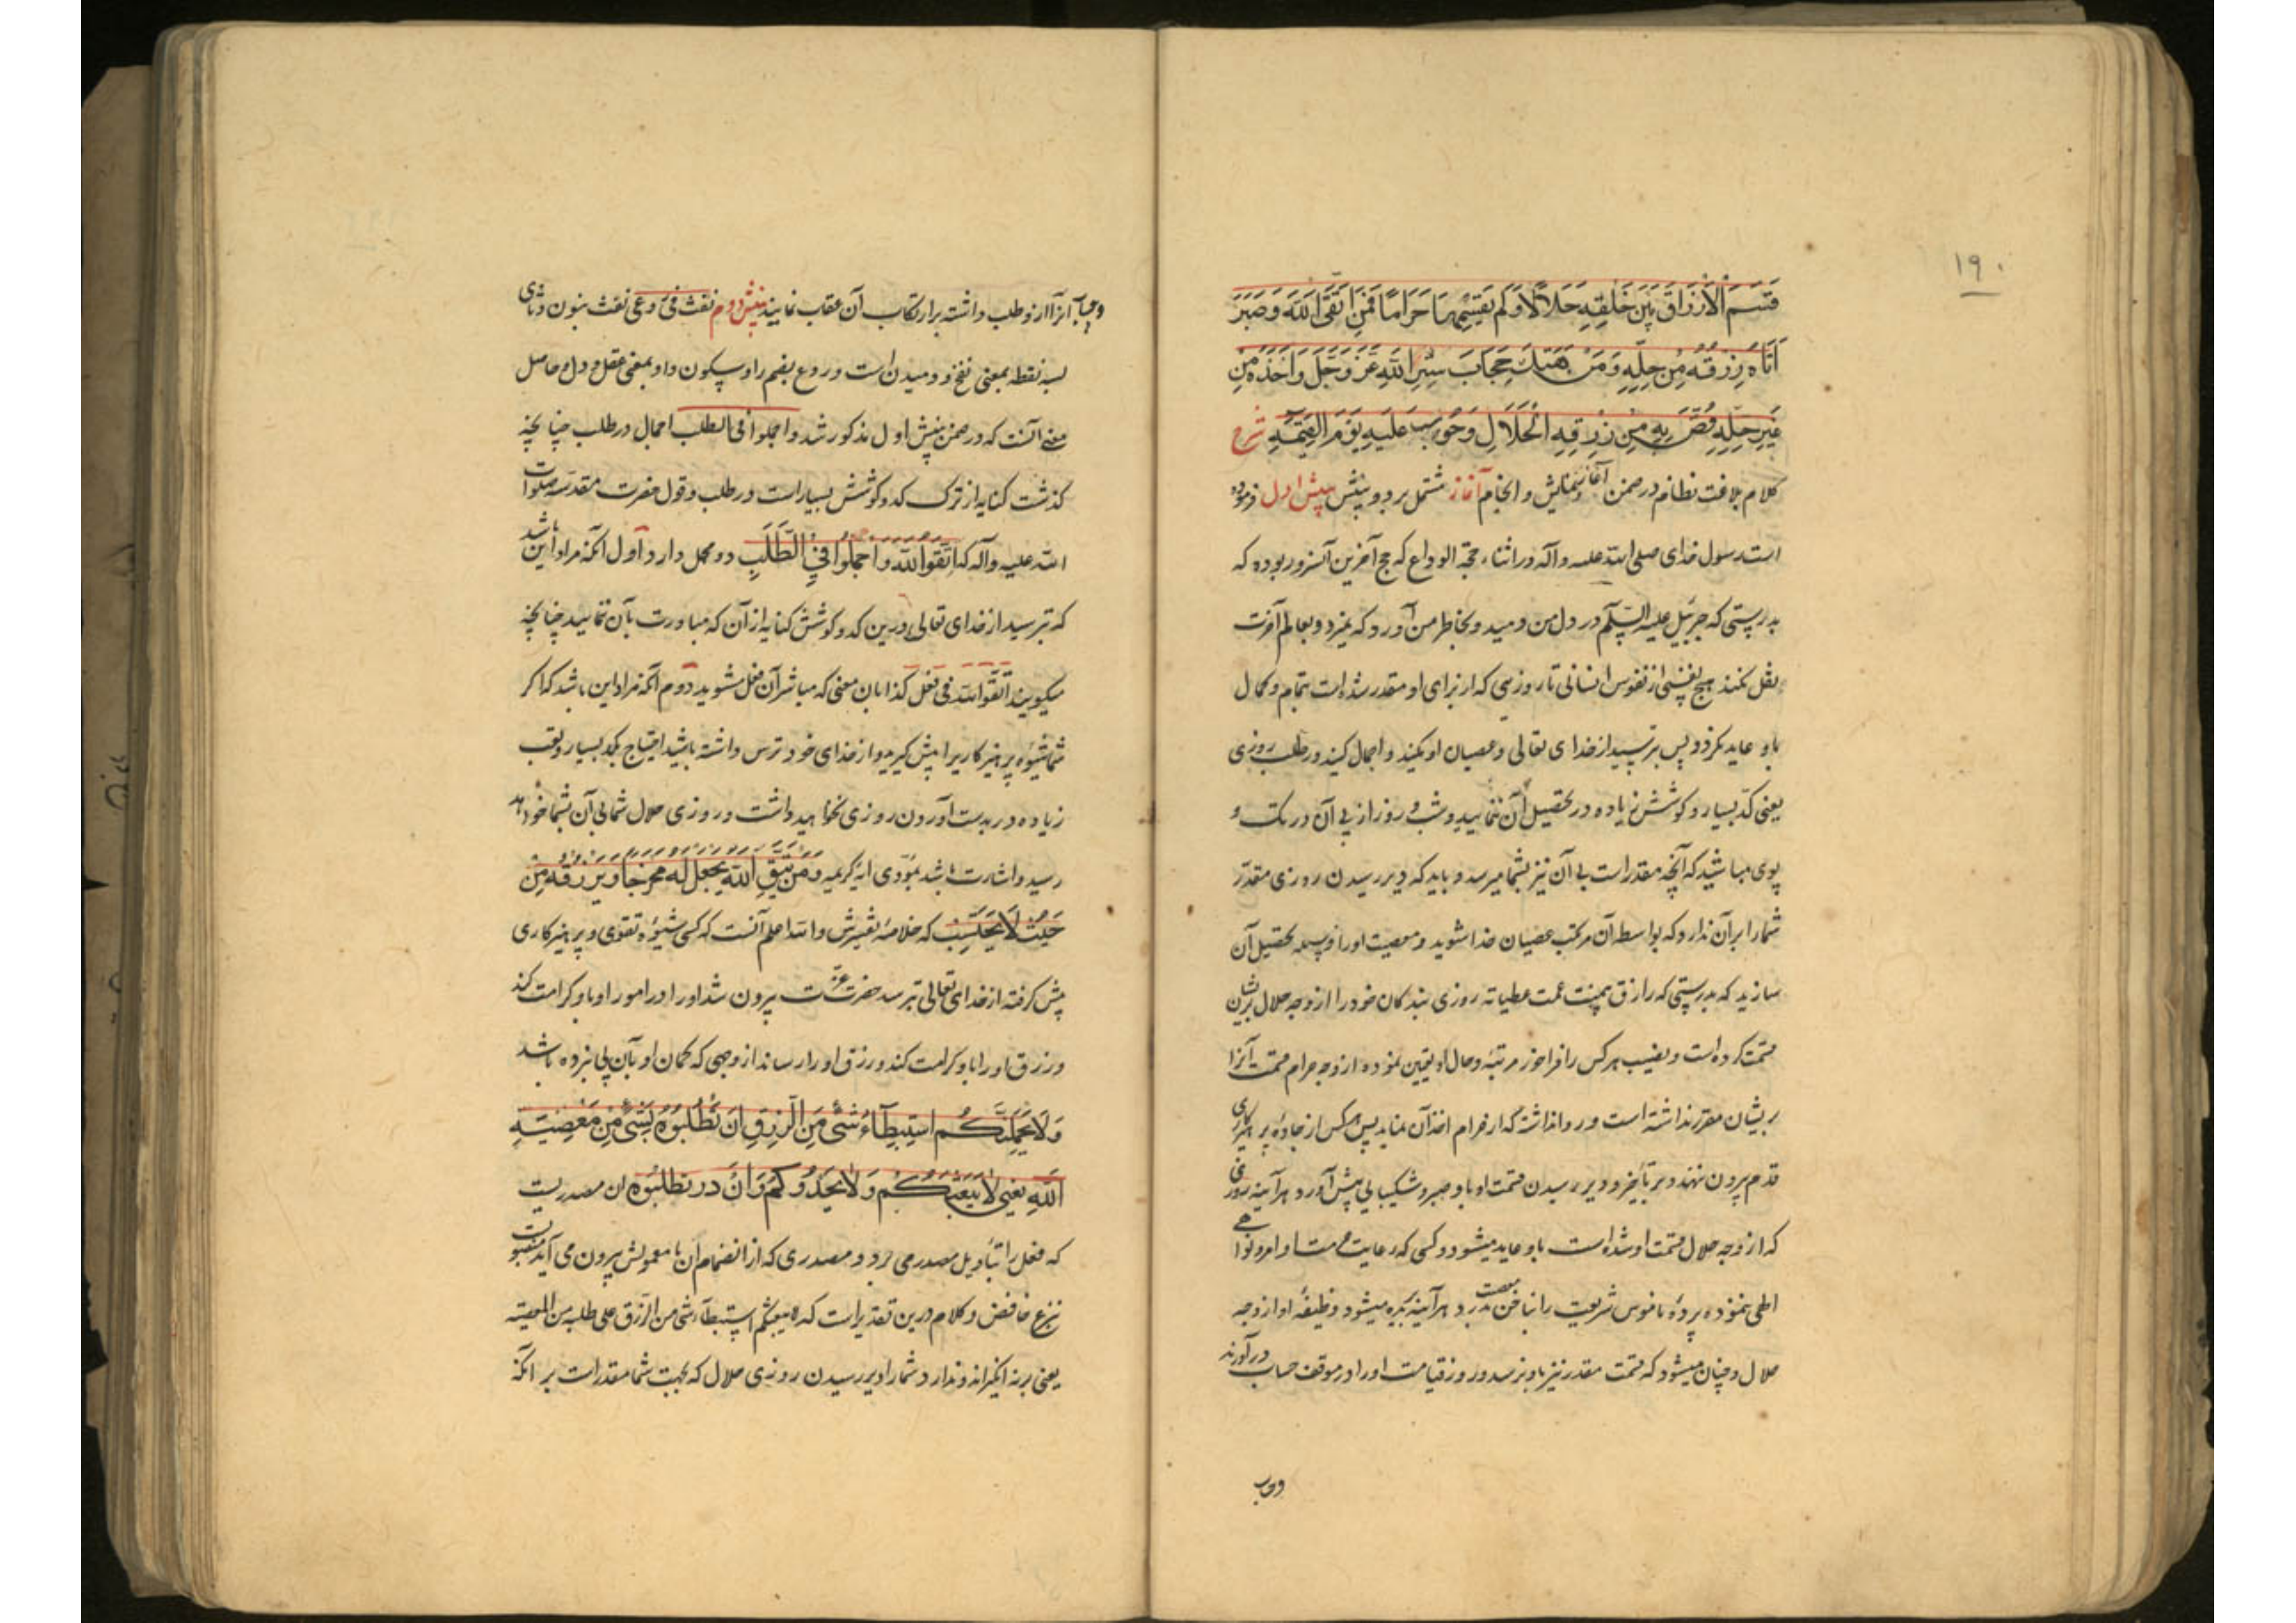 ۱۹۰
قَسَمَ الْاَرْزَاقَ بَيْنَ خَلْقِهِ حَلَالًا وَلَمْ يَقْسِمْهَا حَرَامًا فَمَنِ اتَّقَى اللّٰهَ وَصَبَرَ
اَتَاهُ رِزْقُهُ مِنْ حِلِّهِ وَمَنْ هَتَكَ حِجَابَ سِتْرِ اللّٰهِ عَزَّ وَجَلَّ وَاَخَذَهُ مِنْ
غَيْرِ حِلِّهِ قُصَّ بِهِ مِنْ رِزْقِهِ الْحَلَالِ وَحُوسِبَ عَلَيْهِ يَوْمَ الْقِيٰمَةِ شرح
کلام بلاغت نظام در ضمن آغاز و نمایش و انجام آغاز مشتمل بر دو بینش بینش اول فرموده
است رسول خدای صلی الله علیه وآله در اثناء حجة الوداع که حج آخرین آنسرور بوده که
بدرستی که جبرئیل علیه السلام در دل من دمید و بخاطر من آورد که نمیرد و بعالم آخرت
نقل نکند هیچ نفسی از نفوس انسانی تا روزیی که از برای او مقدر شده است بتمام و کمال
باو عاید نکردد پس بترسید از خدای تعالی و عصیان او نکنید و اجمال کنید در طلب روزی
یعنی کدّ بسیار و کوشش زیاده در تحصیل آن ننمایید و شب و روز از پی آن در تک و
پوی مباشید که آنچه مقدر است بی آن نیز بشما میرسد و باید که دیر رسیدن روزی مقدّر
شما را بر آن ندارد که بواسطه آن مرتکب عصیان خدا شوید و معصیت او را وسیله تحصیل آن
سازید که بدرستی که رازق عمت عطیاته روزی بندکان خود را از وجه حلال برایشان
قسمت کرده است و نصیب هر کس را فراخور مرتبه و حال او تعیین نموده از وجه حرام قسمت آنرا
بریشان مقرر نداشته است و روا نداشته که از حرام اخذ آن نمایند پس هر کس از جادهٔ پرهیزکاری
قدم بیرون ننهد و بر تأخیر و دیر رسیدن قسمت او باو صبر و شکیبایی پیش آورد هر آینه روزی
که از وجه حلال قسمت او شده است باو عاید میشود و کسی که رعایت اوامر و نواهی
الهی ننموده پردهٔ ناموس شریعت را بناخن معصیت بدرد هر آینه میشود وظیفهٔ او از وجه
حلال و چنان میشود که قسمت مقدر نیز باو نرسد و روز قیامت او را در موقف حساب درآورند
و حساب
و حساب آنرا ازو طلب داشته بر ارتکاب آن عقاب نمایند بینش دوم نفث فی روعی نفث بنون و ثای
سه نقطه بمعنی نفخ و دمیدن است و روع بضم را و سکون واو بمعنی عقل و دل و حاصل
معنی آنست که در ضمن بینش اول مذکور شد واجملوا فی الطلب اجمال در طلب چنانچه
گذشت کنایه از ترک کد و کوشش بسیار است در طلب و قول حضرت مقدسه صلوات
الله علیه وآله که اتَّقُوا اللّٰهَ وَاَجْمِلُوا فِي الطَّلَبِ دو محمل دارد اول آنکه مراد این باشد
که بترسید از خدای تعالی درین کد و کوشش کنایه از آن که مبادرت بآن ننمایید چنانچه
میکویند اتقوا الله فی فعل کذا بان معنی که مباشر آن فعل مشوید دوم آنکه مراد این باشد که اکر
شما شیوهٔ پرهیزکاری را پیش کیرید و از خدای خود ترس داشته باشید احتیاج بکد بسیار و تعب
زیاده در بدست آوردن روزی نخواهید داشت و روزی حلال شما بی آن بشما خواهد
رسید و اشارت باشد بمؤدّی ایهٔ کریمه وَمَنْ يَتَّقِ اللّٰهَ يَجْعَلْ لَهُ مَخْرَجًا وَيَرْزُقْهُ مِنْ
حَيْثُ لَا يَحْتَسِبُ که خلاصهٔ تفسیرش والله اعلم آنست که کسی شیوهٔ تقوی و پرهیزکاری
پیش کرفته از خدای تعالی ترسد حضرت عزّت بیرون شد او را در امور او باو کرامت کند
و رزق او را باو کرامت کند و رزق او را رساند از وجهی که کمان او بآن پی نبرده باشد
وَلَا يَحْمِلَنَّكُمْ اسْتِبْطَاءُ شَيْءٍ مِنَ الرِّزْقِ اَنْ تَطْلُبُوهُ بِشَيْءٍ مِنْ مَعْصِيَةِ
اللّٰهِ يعني لَا يَبْعَثْكُمْ وَلَا يَحْدُوكُمْ وَاَنْ در تطلبوه ان مصدریست
که فعل را بتأویل مصدر می برد و مصدری که از انضمام ان با معمولش بیرون می آید منصوبست
بنزع خافض و کلام درین تقدیر است که لا یبعثکم استبطاء شی من الرزق علی طلبه من المعصیة
یعنی برنه انکیزاند و ندارد شما را دیر رسیدن روزی حلال که بجهت شما مقدر است بر آنکه